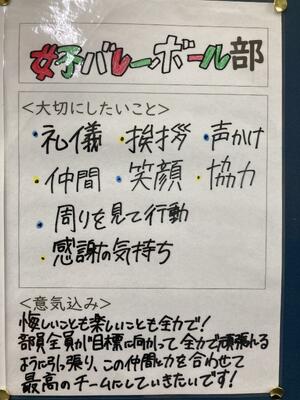 女子バレーボール部
<大切にしたいこと>
•礼儀 •挨拶 •声かけ
•仲間 •笑顔 •協力
•周りを見て行動
•感謝の気持ち
<意気込み>
悔しいことも楽しいことも全力で!
部員全員が目標に向かって全力で頑張れる
ように引っ張り、この仲間と力を合わせて
最高のチームにしていきたいです!